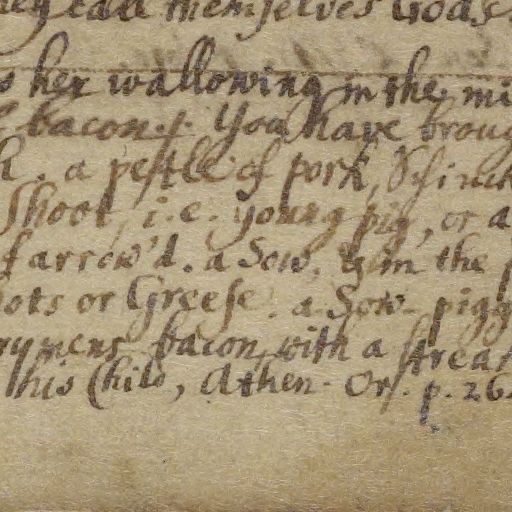 call themselves Gods.
her wallowing in the mi
bacon. p. You have broug
a pestle of pork, Schinck
Shoot, i.e. young pig, or a
farrow'd. a Sow, & in the
ots or Greese. a Sow pigg
rymens bacon, with a strea
his Child, Athen. Ors. p. 26